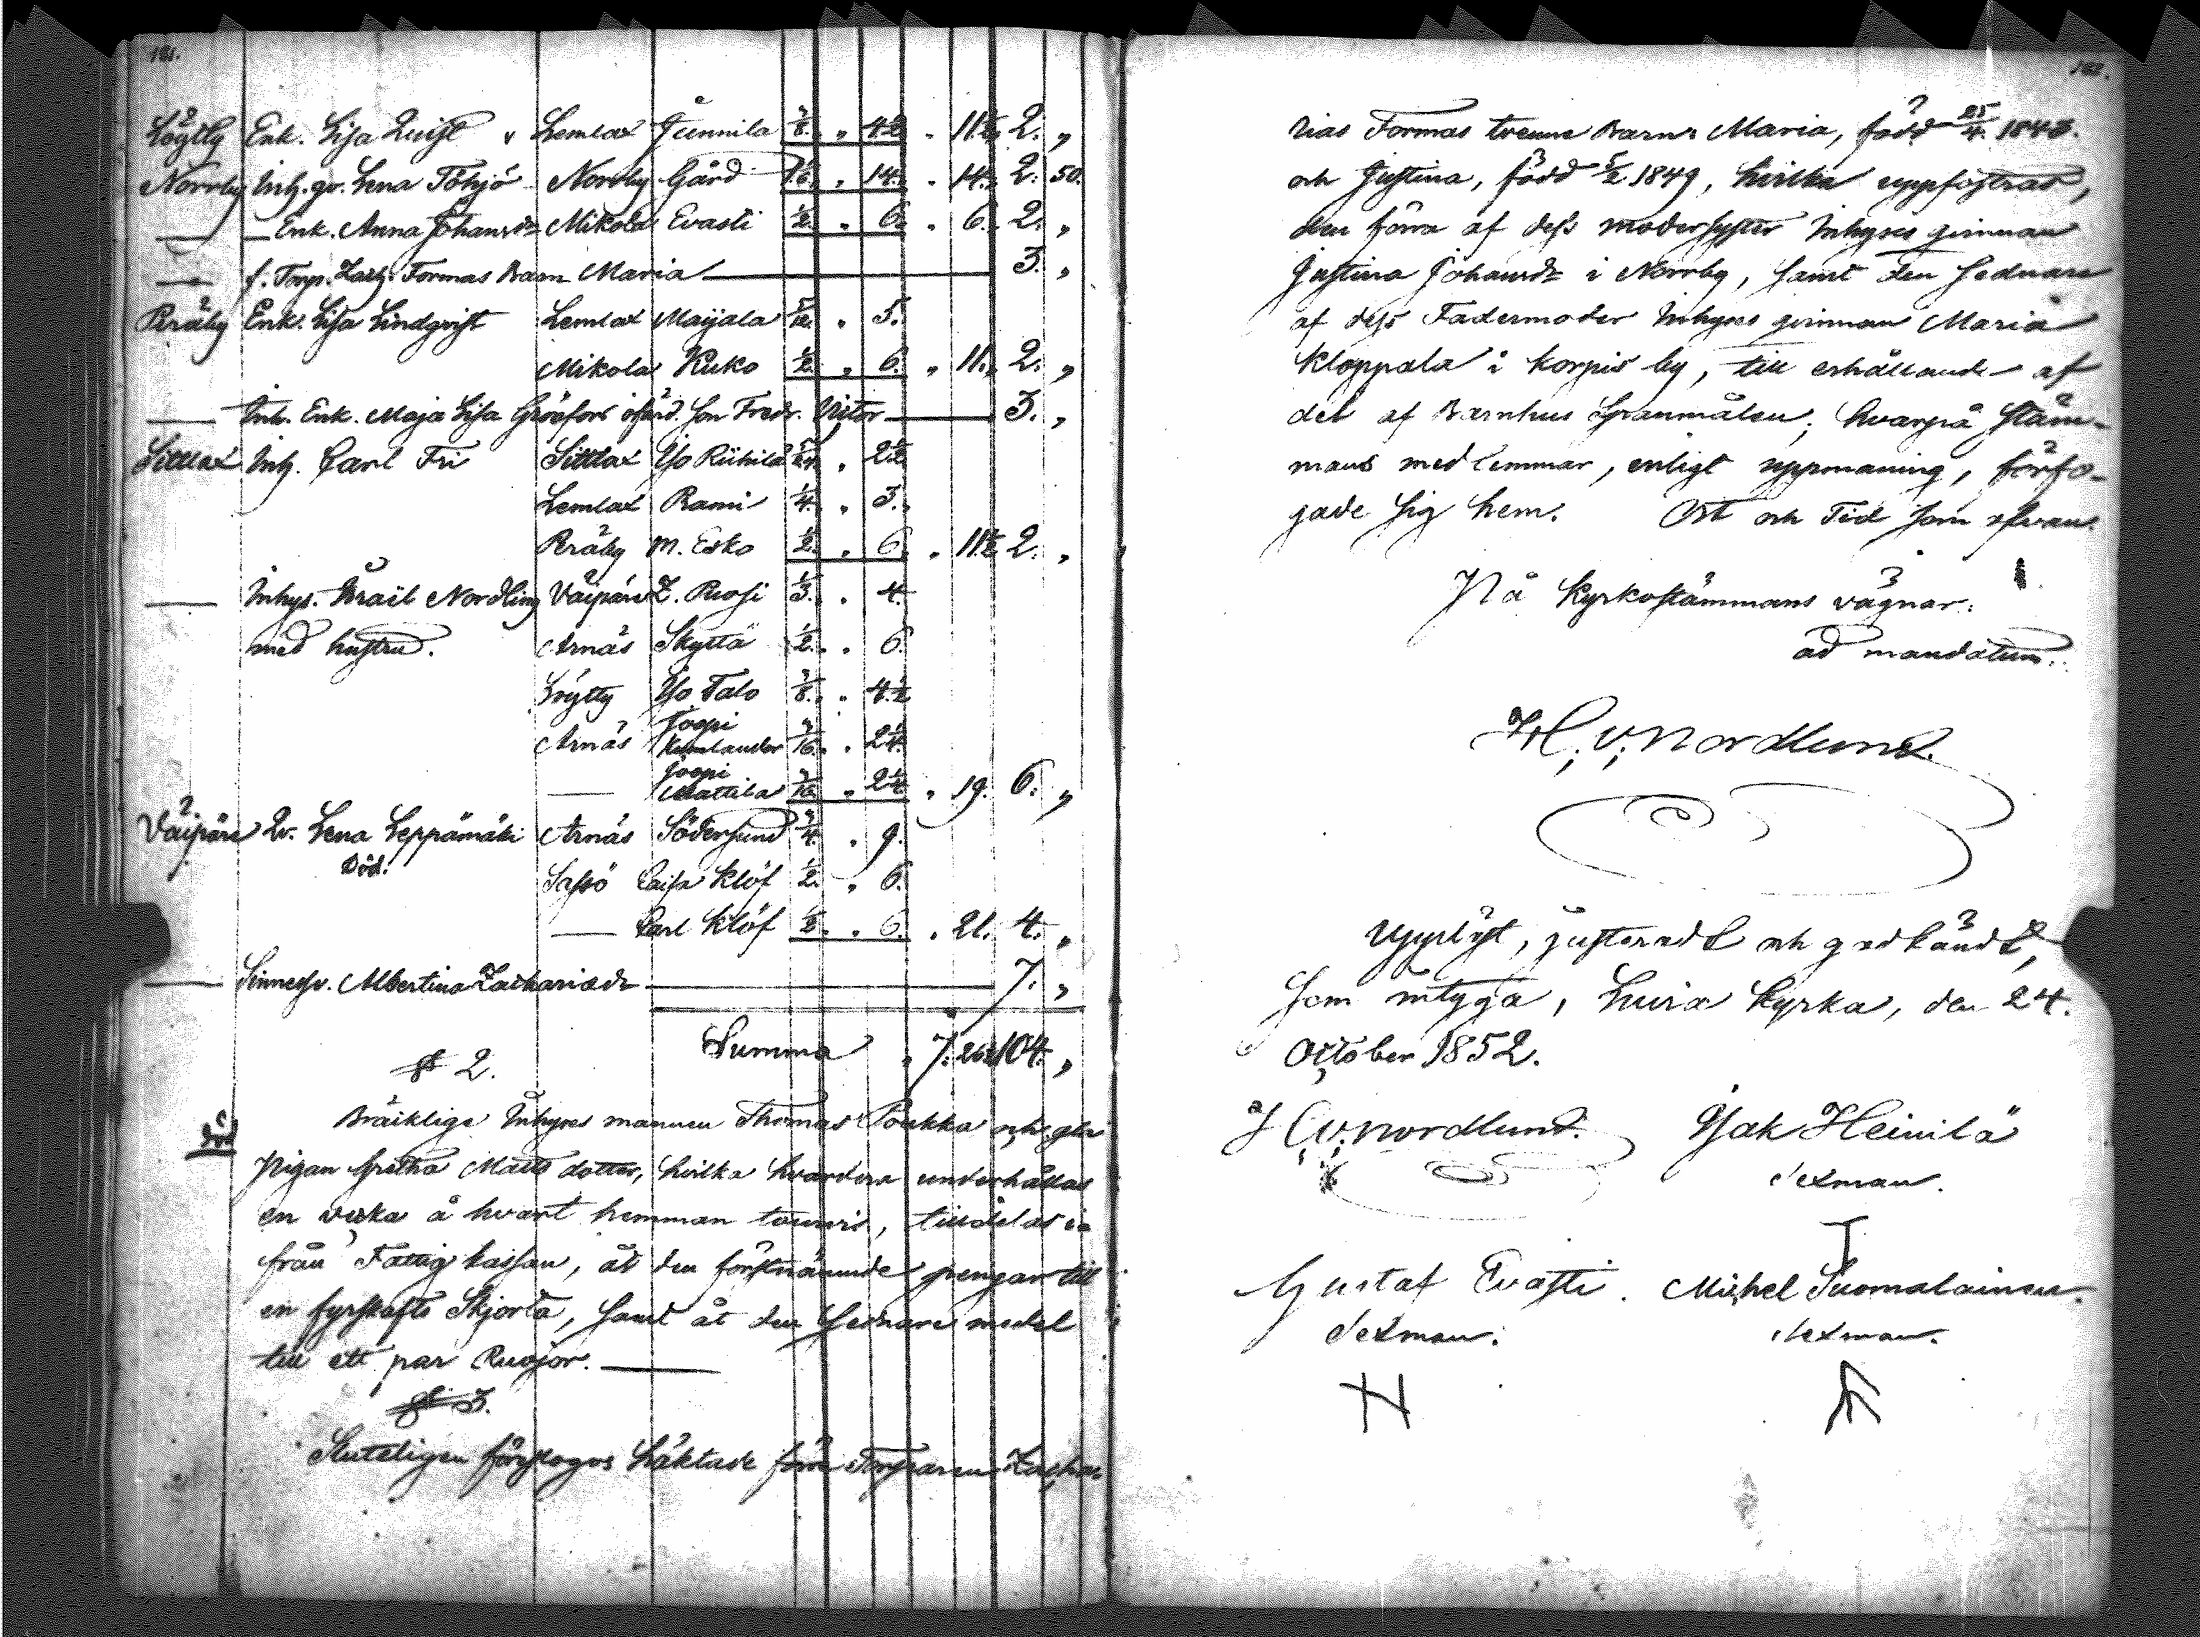 181.
Löytty Enk. Lisa Quist Lemlax Junnila 3/8. „ 4 1/2 „ 11 1/2. 2. „
Norrby Inh. qv. Lena Töhjö Norrby Gård „ 14. „ 14. 2. 50.
— — Enk. Anna Johansdr Mikola Evasti 1/2. „ 6. „ 6. 2. „
— f. Torp. Zach. Formas Barn Maria — 3. „
Peräby Enk. Lisa Lindqvist Lemlax Maijala 5/12. „ 5.
Mikola Kuko 1/2. „ 6. „ 11. 2. „
— Inh. Enk. Maja Lisa Gröefors ofärd. son Fredr. Victor — 3. „
Sittlax Inh. Carl Fri Sittlax Yo Riihilä 5/24. „ 2 1/2
Lemlax Rami 1/4. „ 3.
Peräby M. Esko 1/2. „ 6. „ 11 1/2. 2. „
— Inhys. Israel Nordling Väipäre Z. Ruosi 1/3. „ 4.
med hustru. Arnäs Skyttä 1/2. „ 6.
Löytty Yo Talo 3/8. „ 4 1/2
Arnäs Joopi Kumlander 3/16. „ 2 1/4.
— Joopi Mattila 3/16. „ 2 1/4. „ 19. 6. „
Väipäre Qv. Lena Leppämäki Arnäs Södersund 3/4. „ 9.
Död.
Sassö Caisa Klöf 1/2. „ 6.
— Carl Klöf 1/2. „ 6. „ 21. 4. „
— Sinnessv. Albertina Zachariædr — 7. „
Summa „ 7. 262 104. „
§ 2.
död
Bräcklige Inhyses mannen Thomas Poukka och gla
Pigan Gretha Matts dotter, hvilka hvardera underhållas
en vecka å hvart hemman tourvis, tilldelades
från Fattig kassan, åt den förstnämnde pengar till
en fyrskafts Skjorta, samt åt den sednare medel
till ett par Ruojor. —
§ 3.
Sluteligen förslogos häktade förre Torparen Zacha-
182.
rias Formas trenne Barn: Maria, född 25/4. 1843.
och Justina, född 5/2 1849, hvilka uppfostras,
den förra af dess modersyster Inhyses qvinnan
Justina Johansdr i Norrby, samt den sednare
af dess Fadermoder Inhyses qvinnan Maria
Kloppala i Korpis by, till erhållande af
del af Barnhus Spanmålen; hvarpå stäm-
mans medlemmar, enligt uppmaning, förfo-
gade sig hem. Ort och Tid som ofvan.
På Kyrkostämmans vägnar:
ad mandatum:
H. v. Nordlund.
Uppläst, justeradt och godkändt,
som intyga, Luvia Kyrka, den 24.
October 1852.
H. v. Nordlund. Isak Heinilä
sexman.
Gustaf Evasti. Michel Suomalainen.
sexman. sexman.